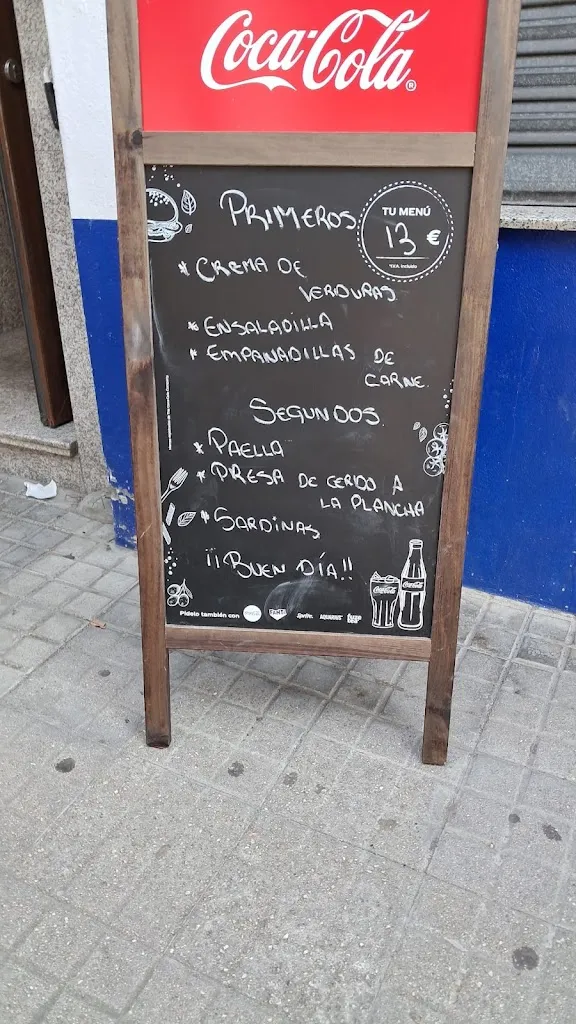 Coca-Cola
PRIMEROS
TU MENÚ
13 €
*IVA incluido
* CREMA DE
VERDURAS
* ENSALADILLA
* EMPANADILLAS DE
CARNE.
SEGUNDOS.
* PAELLA
* PRESA DE CERDO A
LA PLANCHA
* SARDINAS
¡¡BUEN DÍA!!
Coca-Cola
Coca-Cola
Pídelo también con
Sprite
AQUARIUS